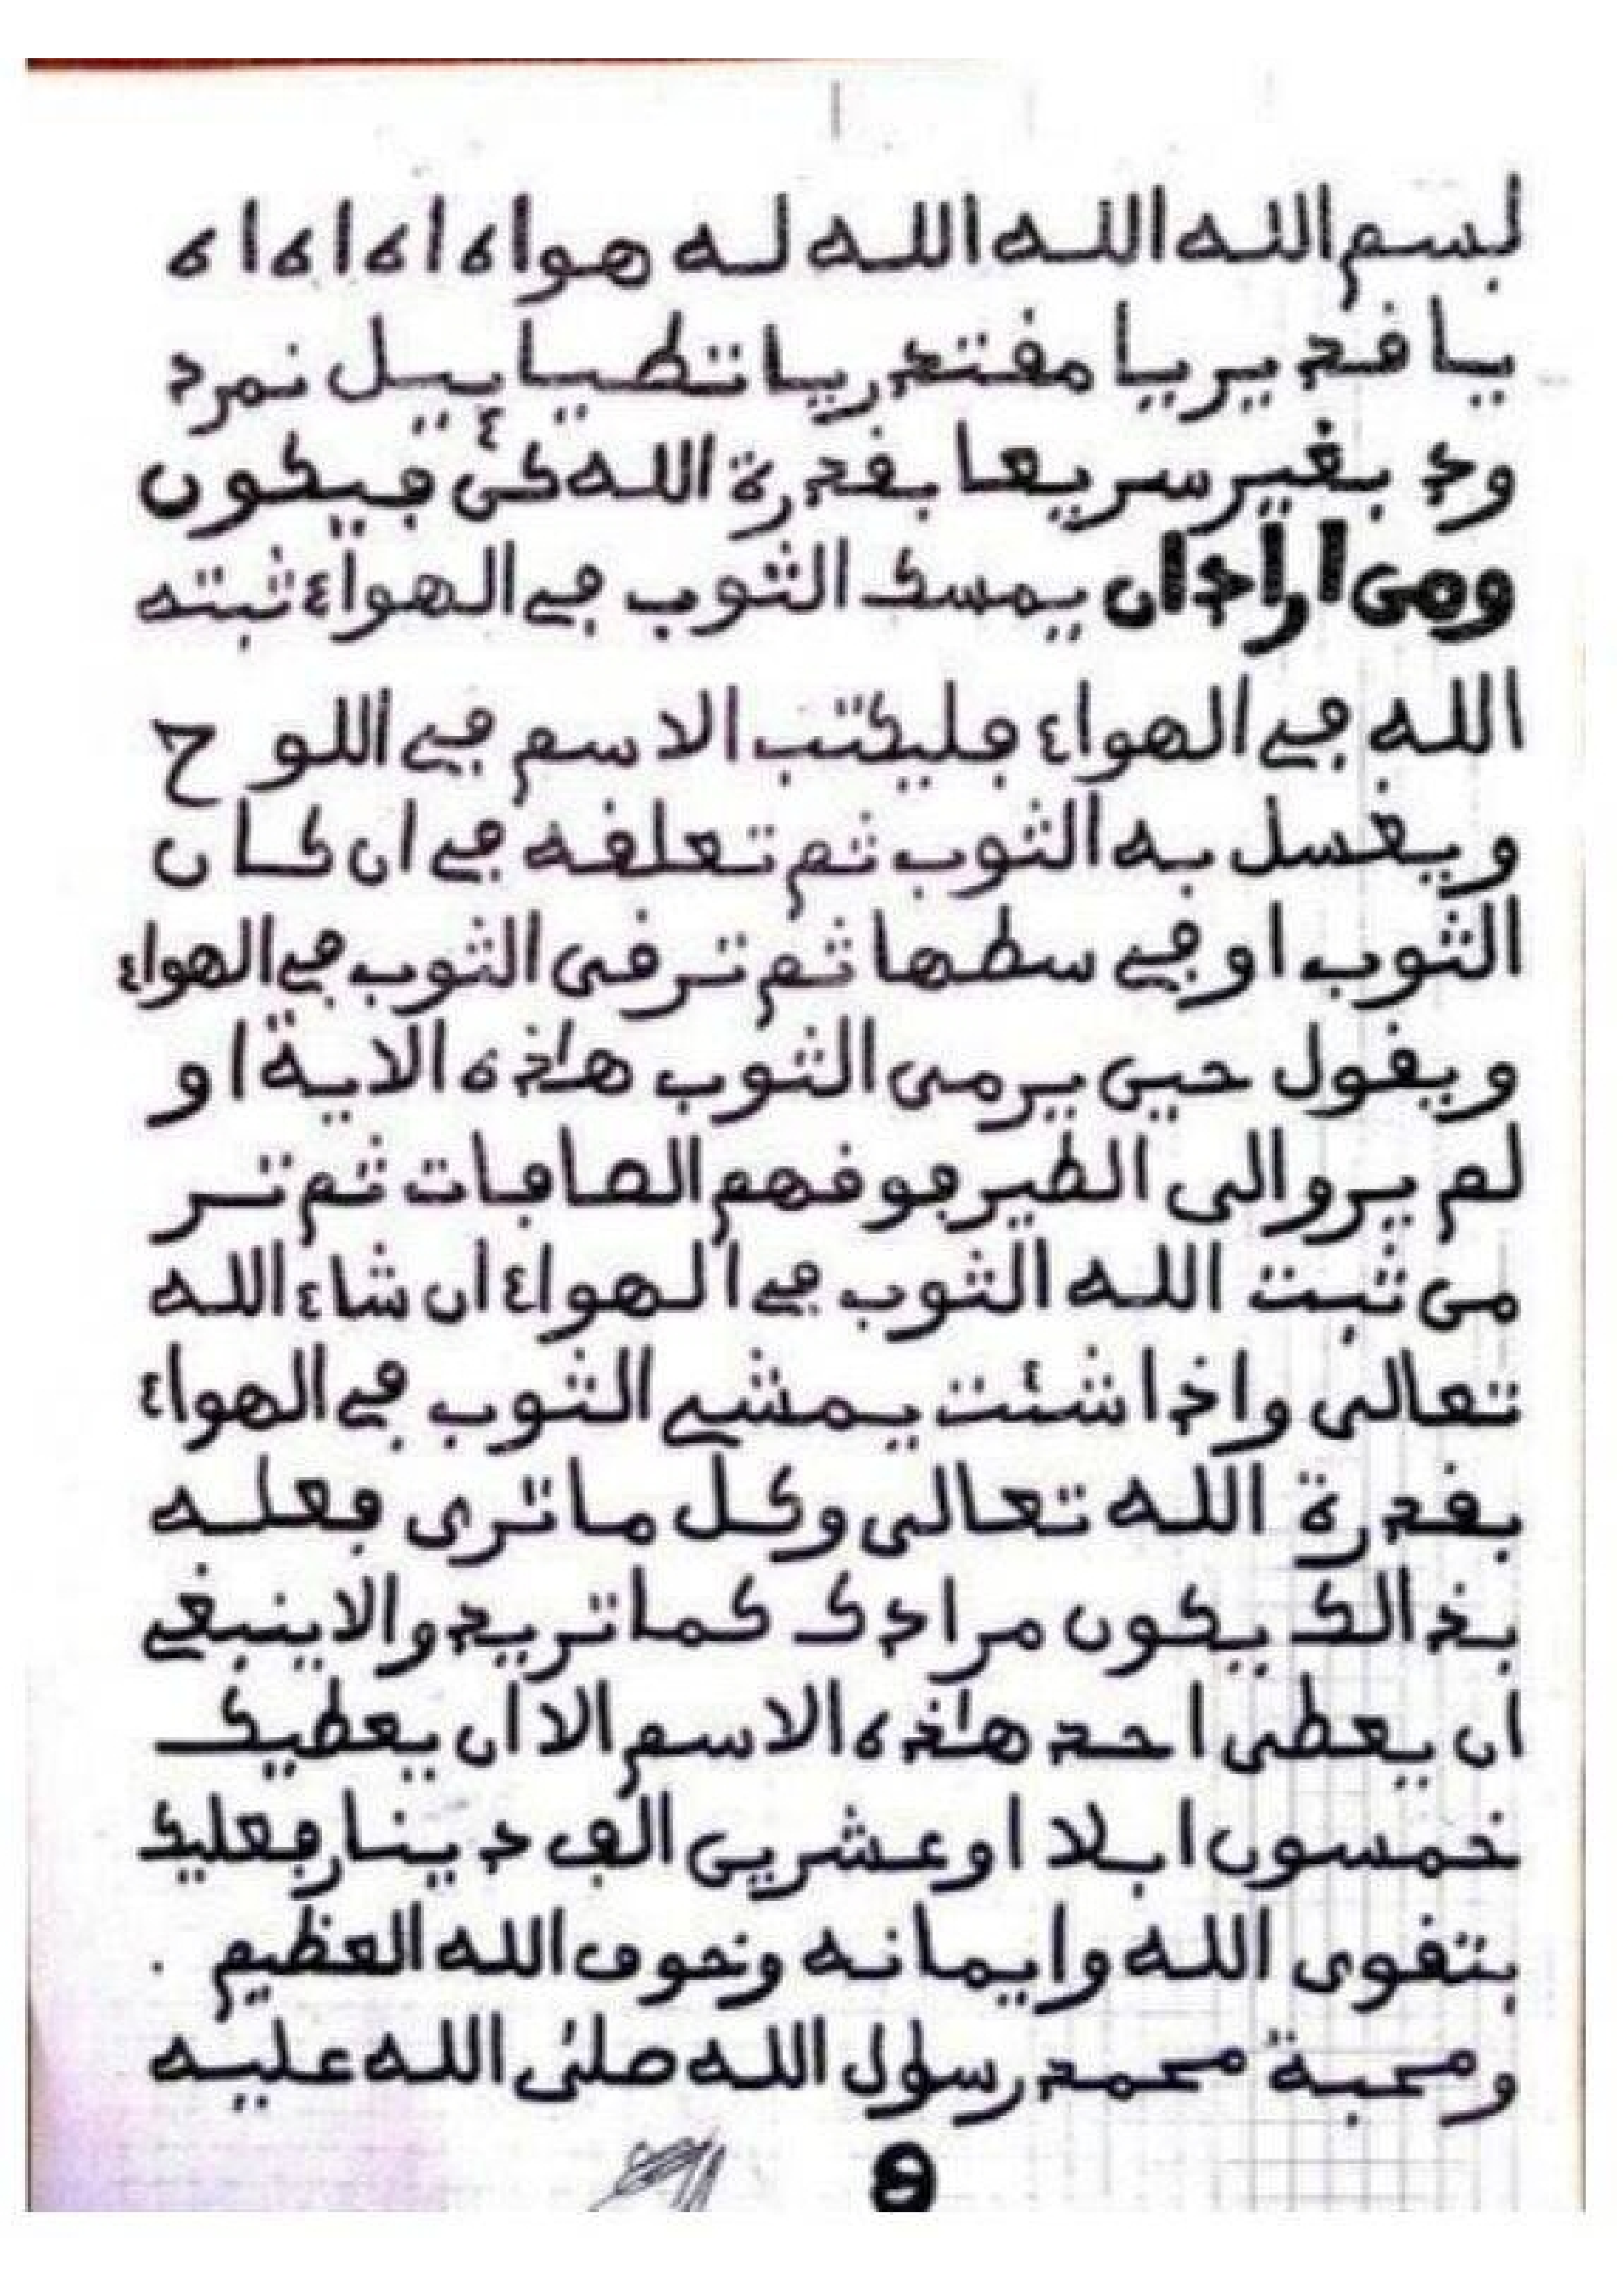 بسم الله الله الله له هواه اه اه اه
يا فدير يا مفتدر يا تطيا ييل نمرد
ود بغير سريعا بفدرة الله كن فيكون
ومن اراد ان يمسك الثوب في الهواء ثبته
الله في الهواء فليكتب الاسم في اللوح
ويغسل به الثوب ثم تعلفه في ان كان
الثوب او في سطها ثم ترفى الثوب في الهواء
ويفول حين يرمى الثوب هاذه الاية او
لم يروا الى الطير فوفهم الصافات ثم تر
مى ثبت الله الثوب في الهواء ان شاء الله
تعالى واذا شئت يمشي الثوب في الهواء
بفدرة الله تعالى وكل ما ترى فعله
بذالك يكون مرادك كما تريد والا ينبغي
ان يعطى احد هاذه الاسم الا ان يعطيك
خمسون ابلا او عشرين الف دينار فعليك
بتفوى الله وايمانه وخوف الله العظيم .
ومحبة محمد رسول الله صلى الله عليه
9